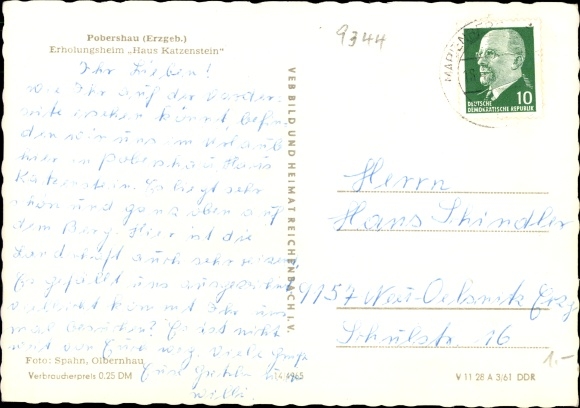 Pobershau (Erzgeb.)
Erholungsheim „Haus Katzenstein"
Ihr Lieben!
Wie Ihr auf der Vorder-
seite ersehen könnt, befin-
den wir uns im Urlaub
hier in Pobershau, Haus
Katzenstein. Es liegt sehr
schön und ganz oben auf
dem Berg. Hier ist die
Landschaft auch sehr
Es gefällt uns
könnt Ihr uns
mal besuchen? Es ist nicht
weit von Euch weg. Viele Grüße
Eure
Willi
Foto: Spahn, Olbernhau
Verbraucherpreis 0.25 DM
VEB BILD UND HEIMAT REICHENBACH I. V.
9344
10
DEUTSCHE
DEMOKRATISCHE REPUBLIK
Herrn
Hans Schindler
9157 Neu-Oelsnitz Erzg
Schulstr. 16
1.-
V 11 28 A 3/61 DDR